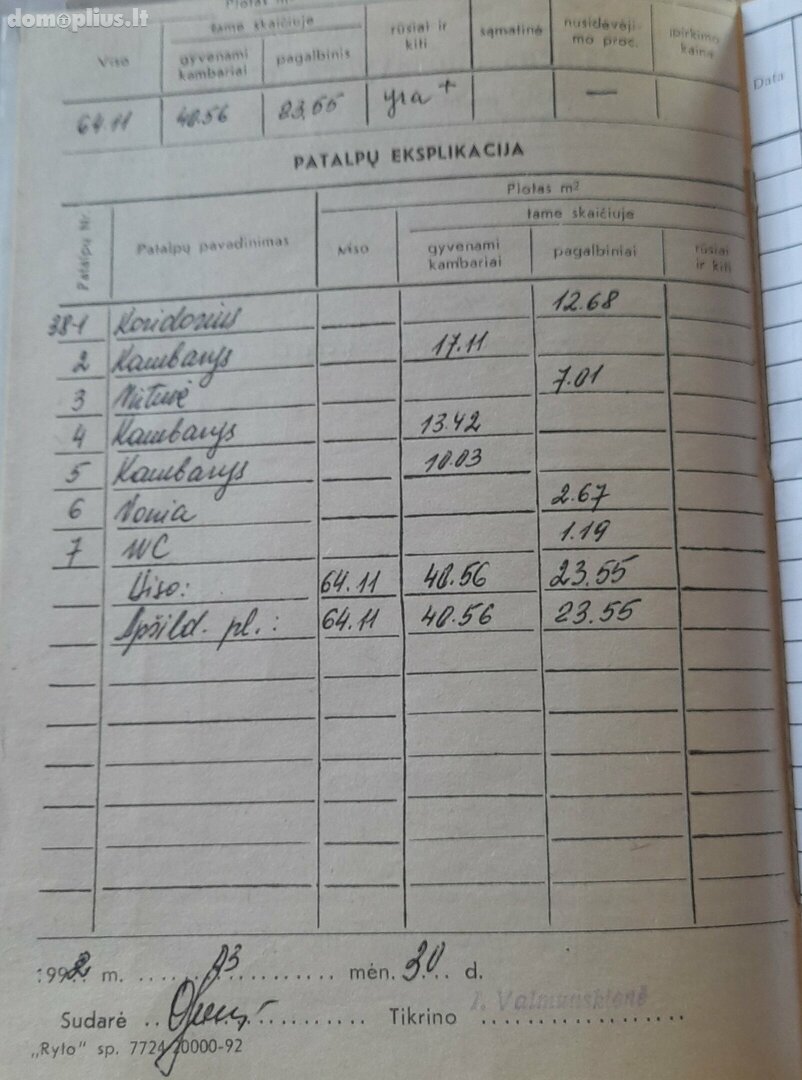 domoplius.lt
Plotas m²
Viso
tame skaičiuje
gyvenami kambariai
pagalbinis
rūsiai ir kiti
sąmatinė
nusidėvėji-
mo proc.
išpirkimo
kaina
Data
64.11 40.56 23,55 yra + —
PATALPŲ EKSPLIKACIJA
Patalpų Nr.
Patalpų pavadinimas
Plotas m²
viso
tame skaičiuje
gyvenami
kambariai
pagalbiniai
rūsiai
ir kiti
38-1 Koridorius 12.68
2 Kambarys 17.11
3 Virtuvė 7.01
4 Kambarys 13.42
5 Kambarys 10.03
6 Vonia 2.67
7 WC 1.19
Viso: 64.11 40.56 23.55
Apšild. pl.: 64.11 40.56 23.55
1992 m. 03 mėn. 30 d.
Sudarė Tikrino
„Ryto" sp. 7724-20000-92